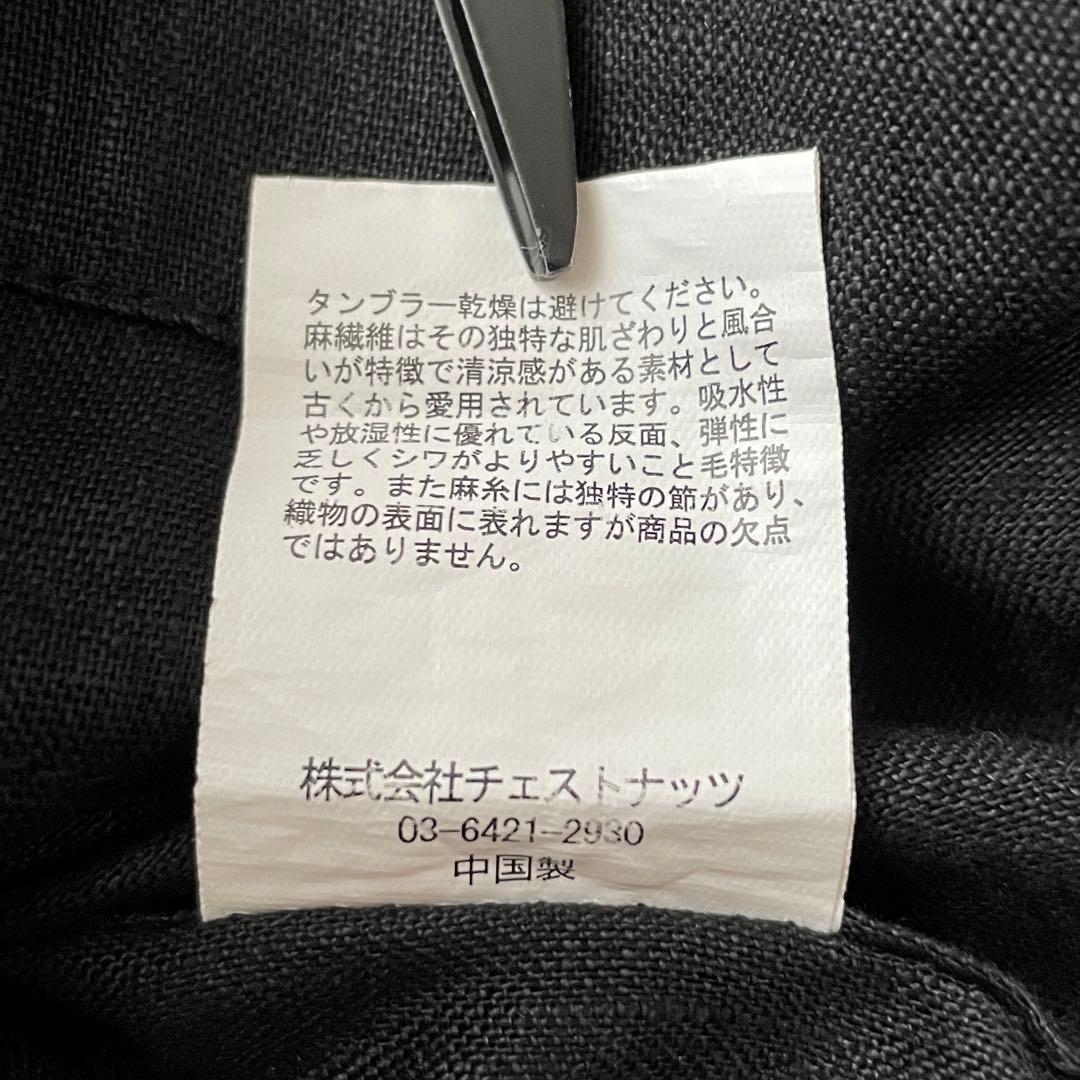 タンブラー乾燥は避けてください。
麻繊維はその独特な肌ざわりと風合
いが特徴で清涼感がある素材として
古くから愛用されています。吸水性
や放湿性に優れている反面、弾性に
乏しくシワがよりやすいこと毛特徴
です。また麻糸には独特の節があり、
織物の表面に表れますが商品の欠点
ではありません。
株式会社チェストナッツ
03-6421-2930
中国製